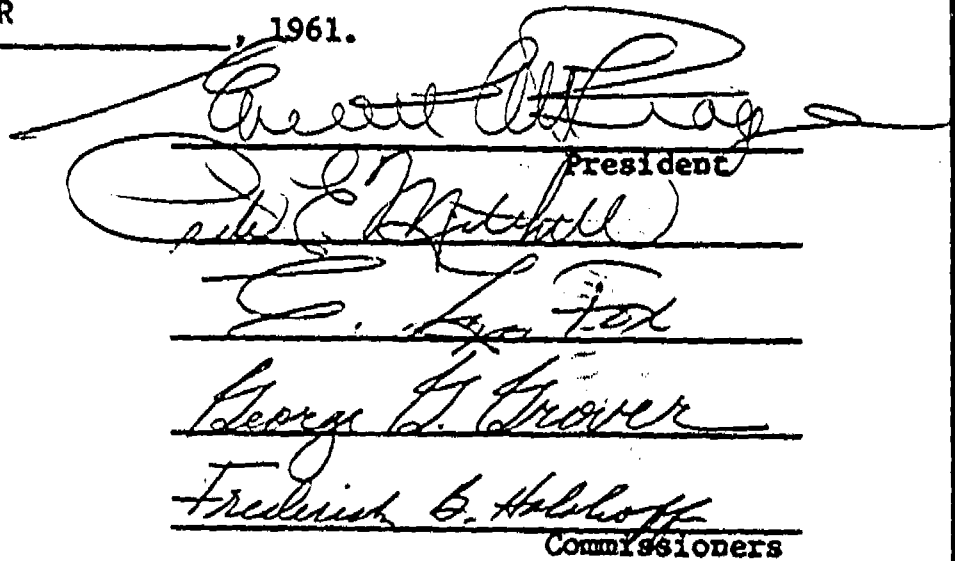 R
, 1961.
Everett C. McKeage
President
Peter E. Mitchell
C. Lyn Fox
George G. Grover
Frederick B. Holoboff
Commissioners